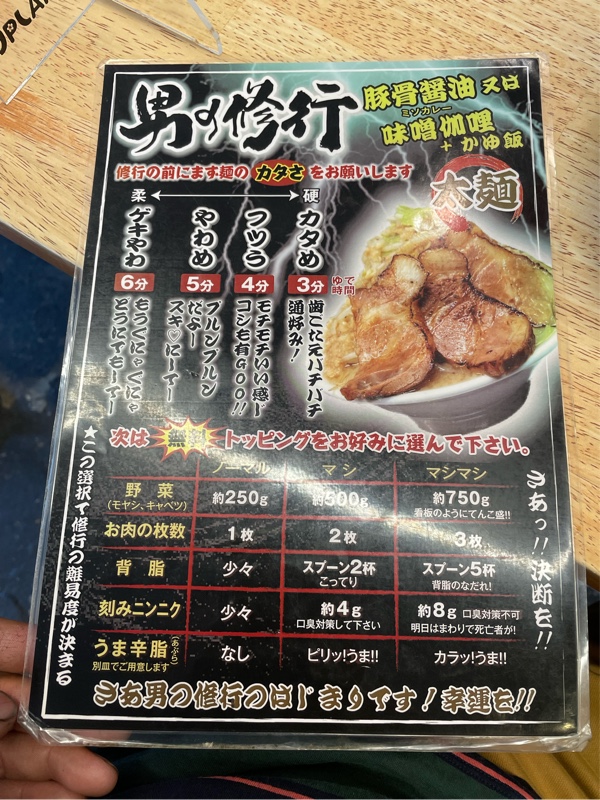 男の修行
豚骨醤油 又は
ミソカレー
味噌伽哩
+ かゆ飯
修行の前にまず麺の カタさ をお願いします
太麺
柔 硬
カタめ
3分
ゆで時間
歯ごたえバチバチ
通好み!
フツう
4分
モチモチいい感じ
コシも有GOO!!
やわめ
5分
プルンプルン
だよー
スキ♡にーてー
ゲキやわ
6分
もうくにゃくにゃ
どうにでもーてー
次は 無料 トッピングをお好みに選んで下さい。
ノーマル マシ マシマシ
野菜 約250g 約500g 約750g
(モヤシ、キャベツ) 看板のようにてんこ盛!!
お肉の枚数 1枚 2枚 3枚
背脂 少々 スプーン2杯 スプーン5杯
こってり 背脂のなだれ!
刻みニンニク 少々 約4g 約8g 口臭対策不可
口臭対策して下さい 明日はまわりで死亡者が!
うま辛脂(あぶら) なし ピリッ!うま!! カラッ!うま!!
別皿でご用意します
★この選択で修行の難易度が決まる
さあっ!!決断を!!
さあ男の修行のはじまりです!幸運を!!